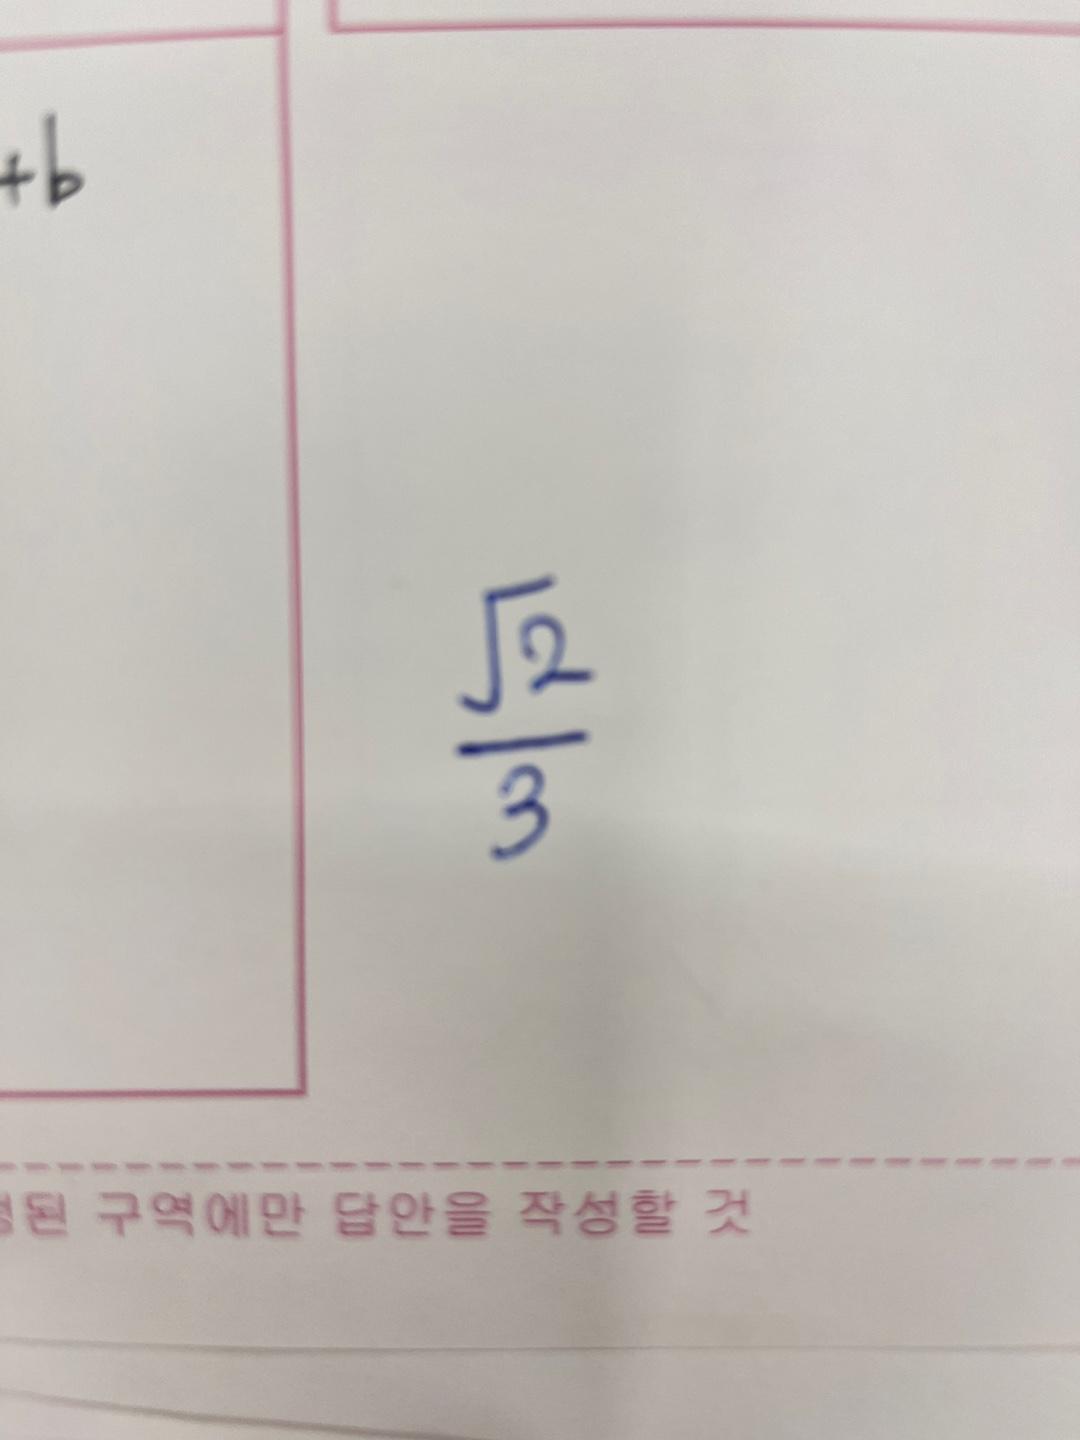 +b
√2/3
된 구역에만 답안을 작성할 것